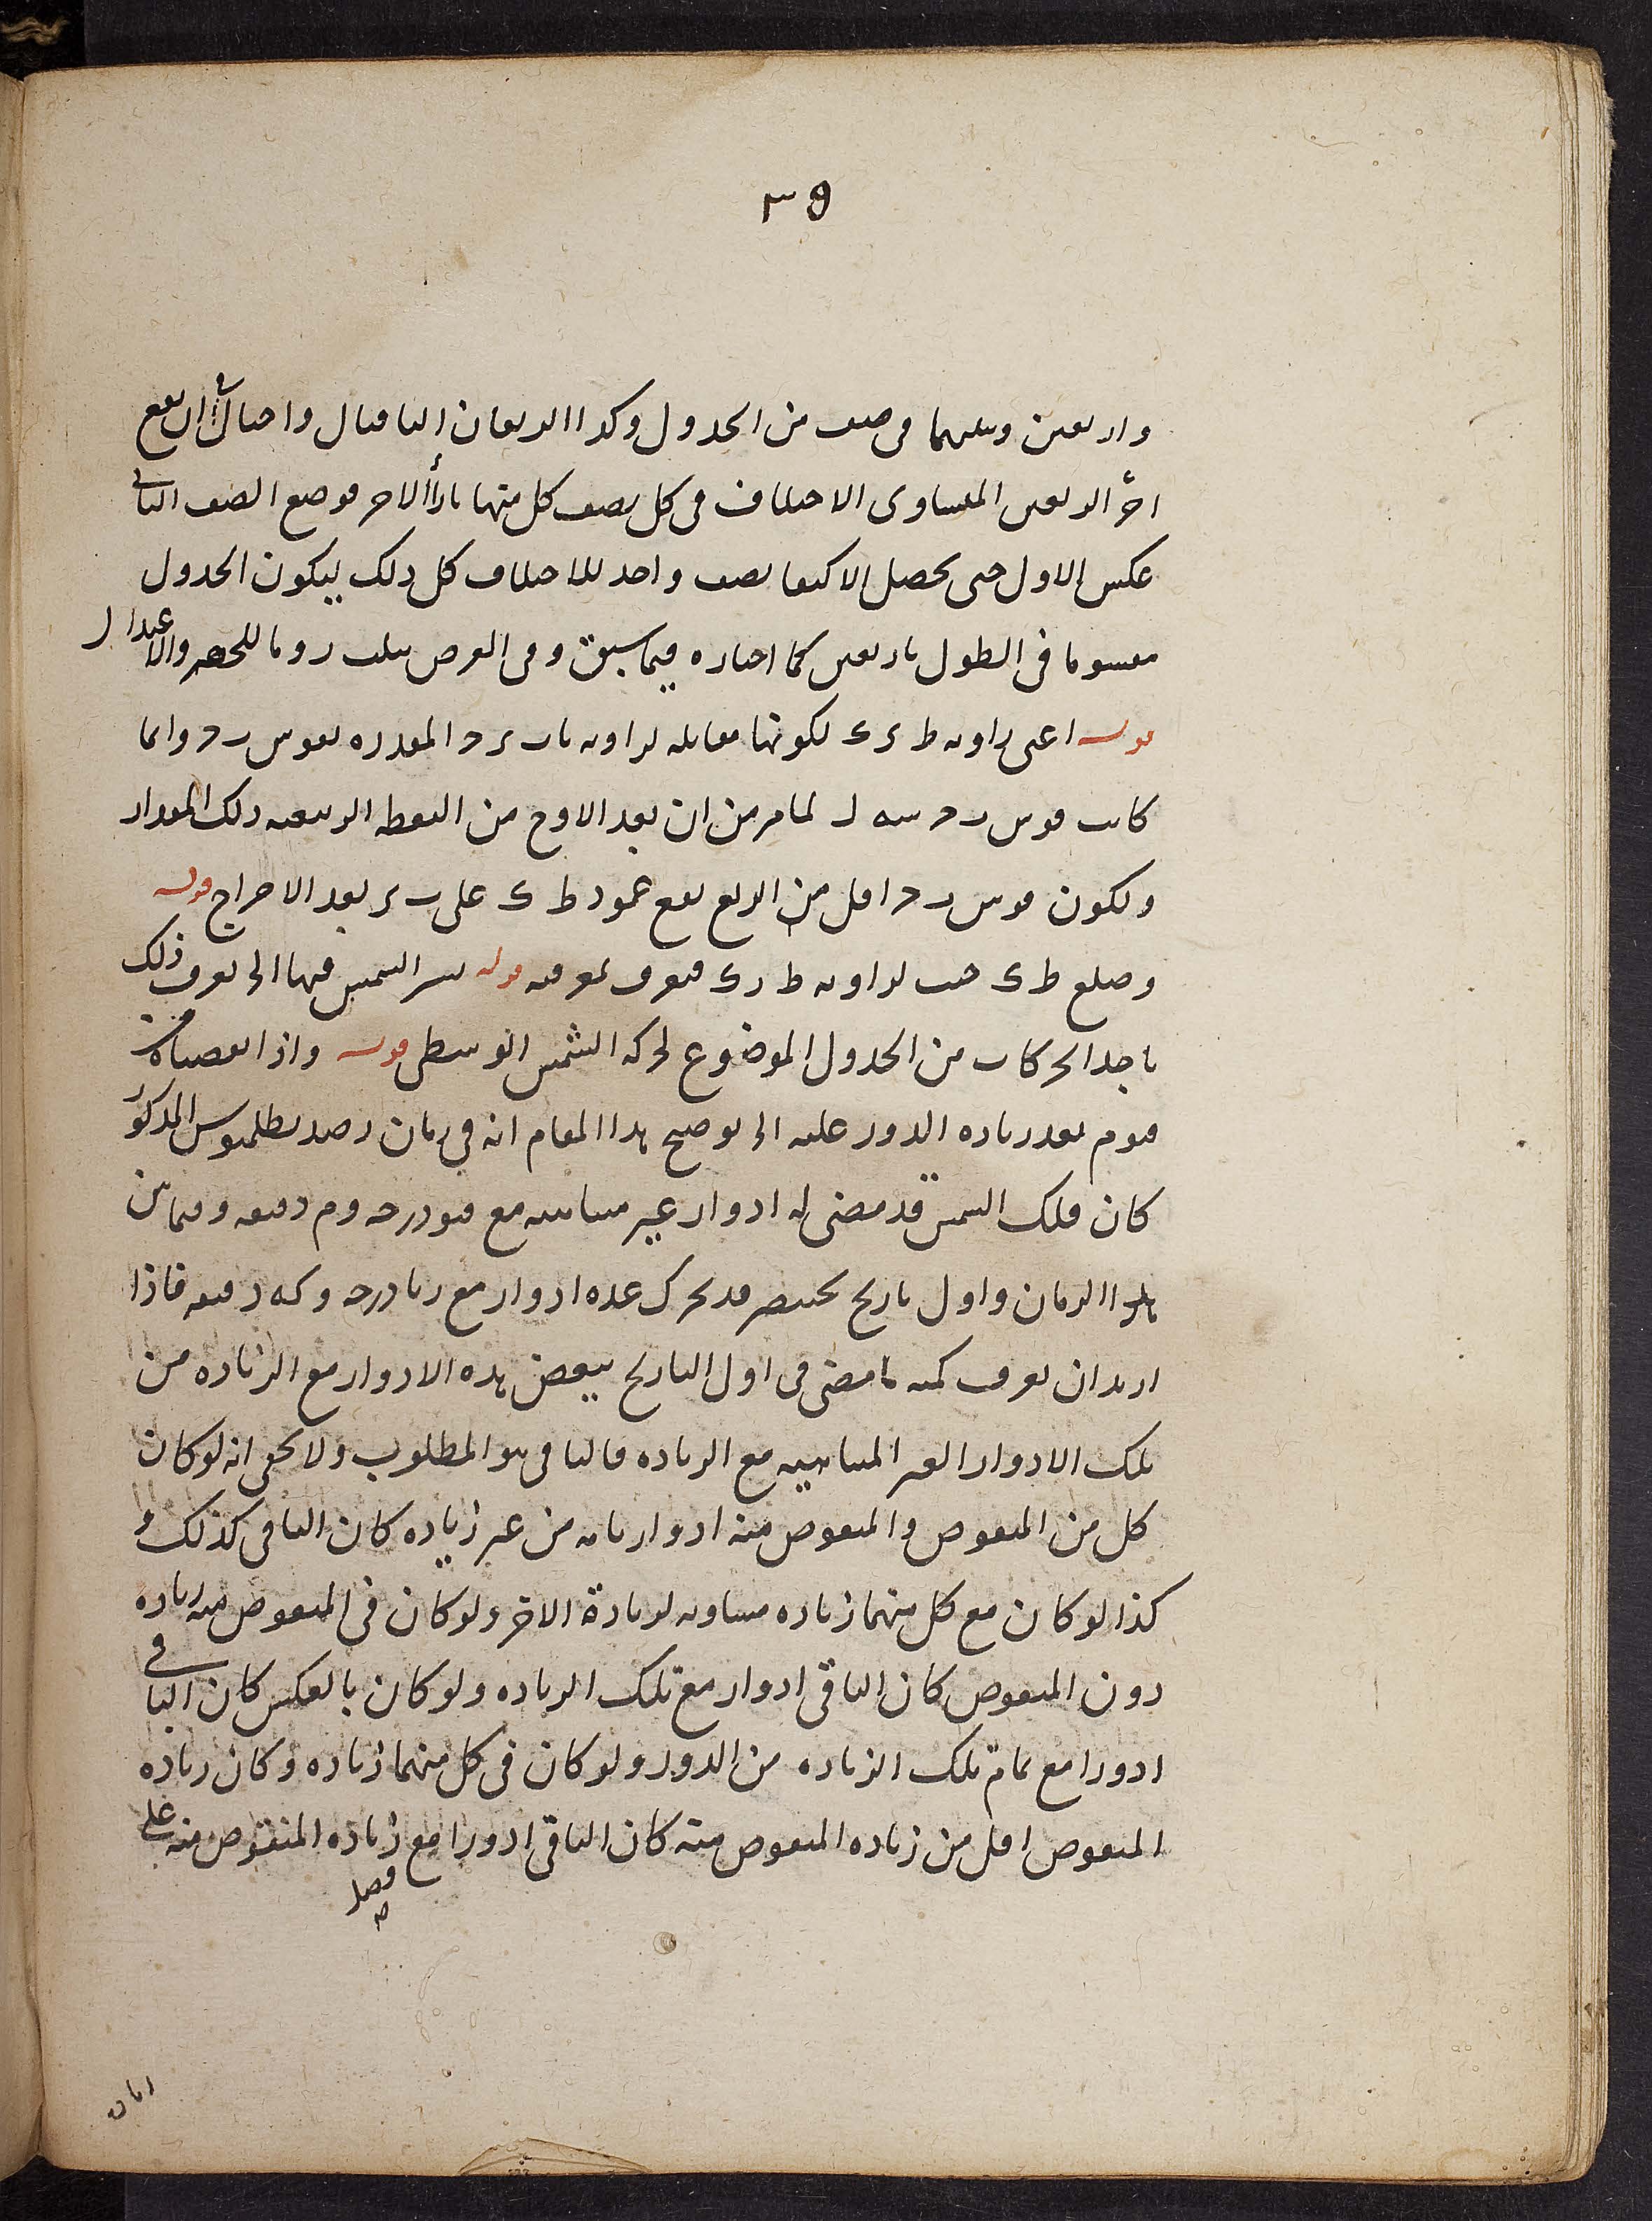 ٣٩
واربعين وسهما فى صف من الجدول وكذا الربعان الباقيان واحتال فى ان يقع
اجزاء الربعين المتساوى الاختلاف فى كل نصف كل منها بازاء الاخر فوضع الصف الثانى
عكس الاول حتى يحصل الاكتفا بصف واحد للاختلاف كل ذلك ليكون الجدول
مقسوما فى الطول باربعين كما اختاره فيما سبق وفى العرض بثلث روما للحصر والاعتدال
قوله اعنى زاوية ط ر ى لكونها مقابله لزاوية ب ر د المقدره بقوس ب د وانما
كانت قوس ب د سه ل لما مر من ان بعد الاوج من النقطه الربيعيه ذلك المقدار
ولكون قوس ب د اقل من الربع يقع عمود ط ى على ب ر بعد الاخراج قوله
وضلع ط ى جيب لزاوية ط ر ى فيعرف بمعرفته قوله سير الشمس فيها اى يعرف ذلك
باخذ الحركات من الجدول الموضوع لحركه الشمس الوسطى قوله واذا نقصناه من
فوم بعد زياده الدور عليه اى توضيح هذا المقام انه فى زمان رصد بطلميوس المذكور
كان فلك الشمس قد مضى له ادوار غير متناهيه مع قيو درجه وم دقيقه وفيما بين
هذا الزمان واول تاريخ بختنصر قد تحرك عده ادوار مع ريا درجه وكه دقيقه فاذا
اريد ان يعرف كميه ما مضى فى اول التاريخ ينقص هذه الادوار مع الزياده من
تلك الادوار الغير المتناهيه مع الزياده فالباقى هو المطلوب ولا يخفى انه لو كان
كل من المنقوص والمنقوص منه ادوار تامه من غير زياده كان الباقى كذلك و
كذا لو كان مع كل منهما زياده مساويه لزيادة الاخر ولو كان فى المنقوص منه زياده
دون المنقوص كان الباقى ادوار مع تلك الزياده ولو كان بالعكس كان الباقى
ادورا مع تمام تلك الزياده من الدور ولو كان فى كل منهما زياده وكان زياده
المنقوص اقل من زياده المنقوص منه كان الباقى ادورا مع فضل زياده المنقوص منه على